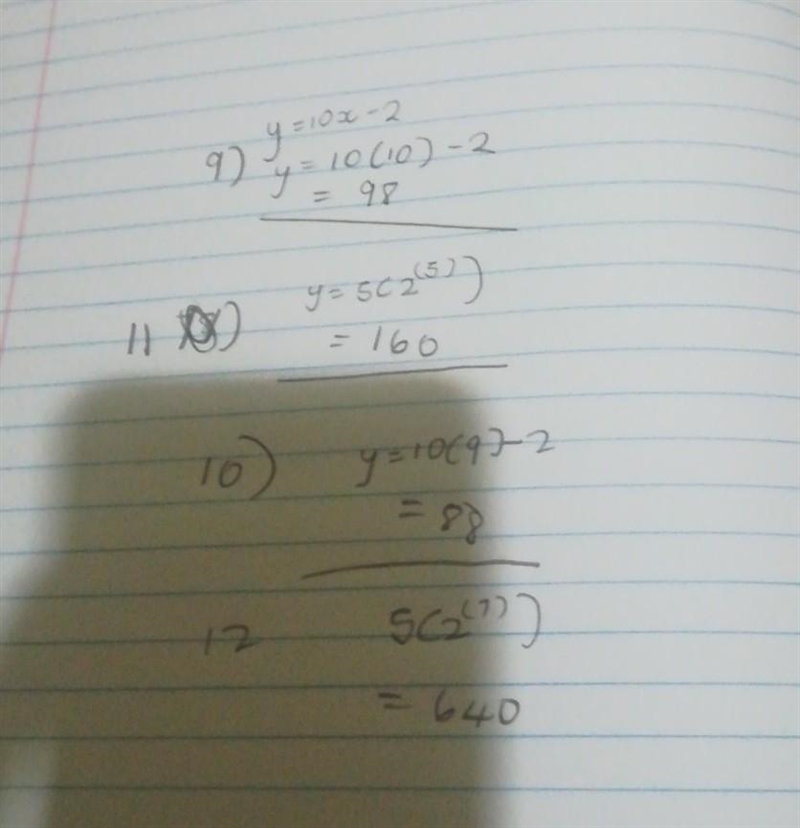 y=10x-2
9) y=10(10)-2
= 98
y=5(2^(5))
11 )
= 160
10) y=10(9)-2
= 88
12 5(2^(7))
= 640